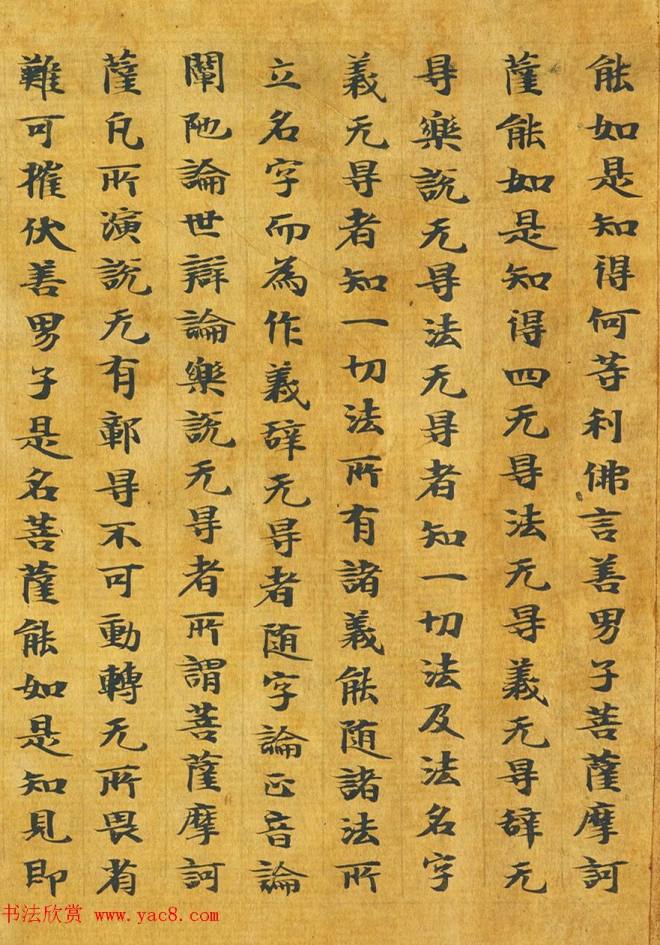 能如是知得何等利佛言善男子菩薩摩訶
薩能如是知得四无㝵法无㝵義无㝵辞无
㝵樂說无㝵法无㝵者知一切法及法名字
義无㝵者知一切法所有諸義能随諸法所
立名字而為作義辞无㝵者随字論正音論
闡陁論世辯論樂說无㝵者所謂菩薩摩訶
薩凡所演說无有鄣㝵不可動轉无所畏省
難可摧伏善男子是名菩薩能如是知見即
书法欣赏 www.yac8.com